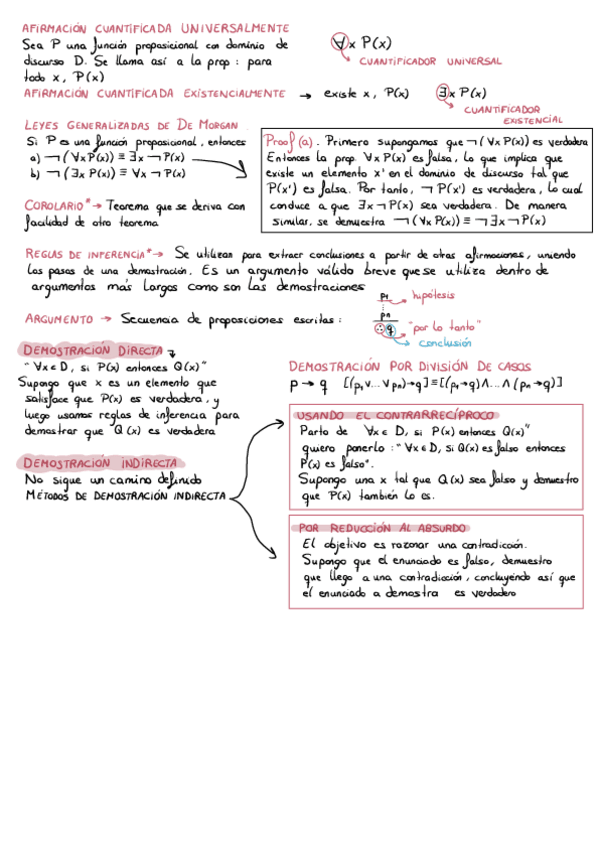 AFIRMACIÓN CUANTIFICADA UNIVERSALMENTE
Sea P una función proposicional con dominio de
discurso D. Se llama así a la prop : para
todo x, P(x)
∀x P(x)
CUANTIFICADOR UNIVERSAL
AFIRMACIÓN CUANTIFICADA EXISTENCIALMENTE → existe x, P(x)
∃x P(x)
CUANTIFICADOR
EXISTENCIAL
LEYES GENERALIZADAS DE DE MORGAN
Si P es una función proposicional, entonces
a) ¬(∀x P(x)) ≡ ∃x ¬P(x)
b) ¬(∃x P(x)) ≡ ∀x ¬P(x)
Proof (a). Primero supongamos que ¬(∀x P(x)) es verdadera
Entonces la prop. ∀x P(x) es falsa, lo que implica que
existe un elemento x' en el dominio de discurso tal que
P(x') es falsa. Por tanto, ¬P(x') es verdadera, lo cual
conduce a que ∃x ¬P(x) sea verdadera. De manera
similar, se demuestra ¬(∀x P(x)) ≡ ¬∃x ¬P(x)
COROLARIO* → Teorema que se deriva con
facilidad de otro teorema
REGLAS DE INFERENCIA* → Se utilizan para extraer conclusiones a partir de otras afirmaciones, uniendo
los pasos de una demostración. Es un argumento válido breve que se utiliza dentro de
argumentos más largos como son las demostraciones
ARGUMENTO → Secuencia de proposiciones escritas :
p₁ → hipótesis
⋮
pₙ
∴ q "por lo tanto"
conclusión
DEMOSTRACIÓN DIRECTA
"∀x ∈ D, si P(x) entonces Q(x)"
Supongo que x es un elemento que
satisface que P(x) es verdadera, y
luego usamos reglas de inferencia para
demostrar que Q(x) es verdadera
DEMOSTRACIÓN POR DIVISIÓN DE CASOS
p → q [(p₁ ∨... ∨ pₙ)→q] ≡ [(p₁→q) ∧... ∧ (pₙ→q)]
DEMOSTRACIÓN INDIRECTA
No sigue un camino definido
MÉTODOS DE DEMOSTRACIÓN INDIRECTA
USANDO EL CONTRARRECÍPROCO
Parto de ∀x ∈ D, si P(x) entonces Q(x)"
quiero ponerlo : "∀x ∈ D, si Q(x) es falso entonces
P(x) es falso".
Supongo una x tal que Q(x) sea falso y demuestro
que P(x) también lo es.
POR REDUCCIÓN AL ABSURDO
El objetivo es razonar una contradicción.
Supongo que el enunciado es falso, demuestro
que llego a una contradicción, concluyendo así que
el enunciado a demostra es verdadero